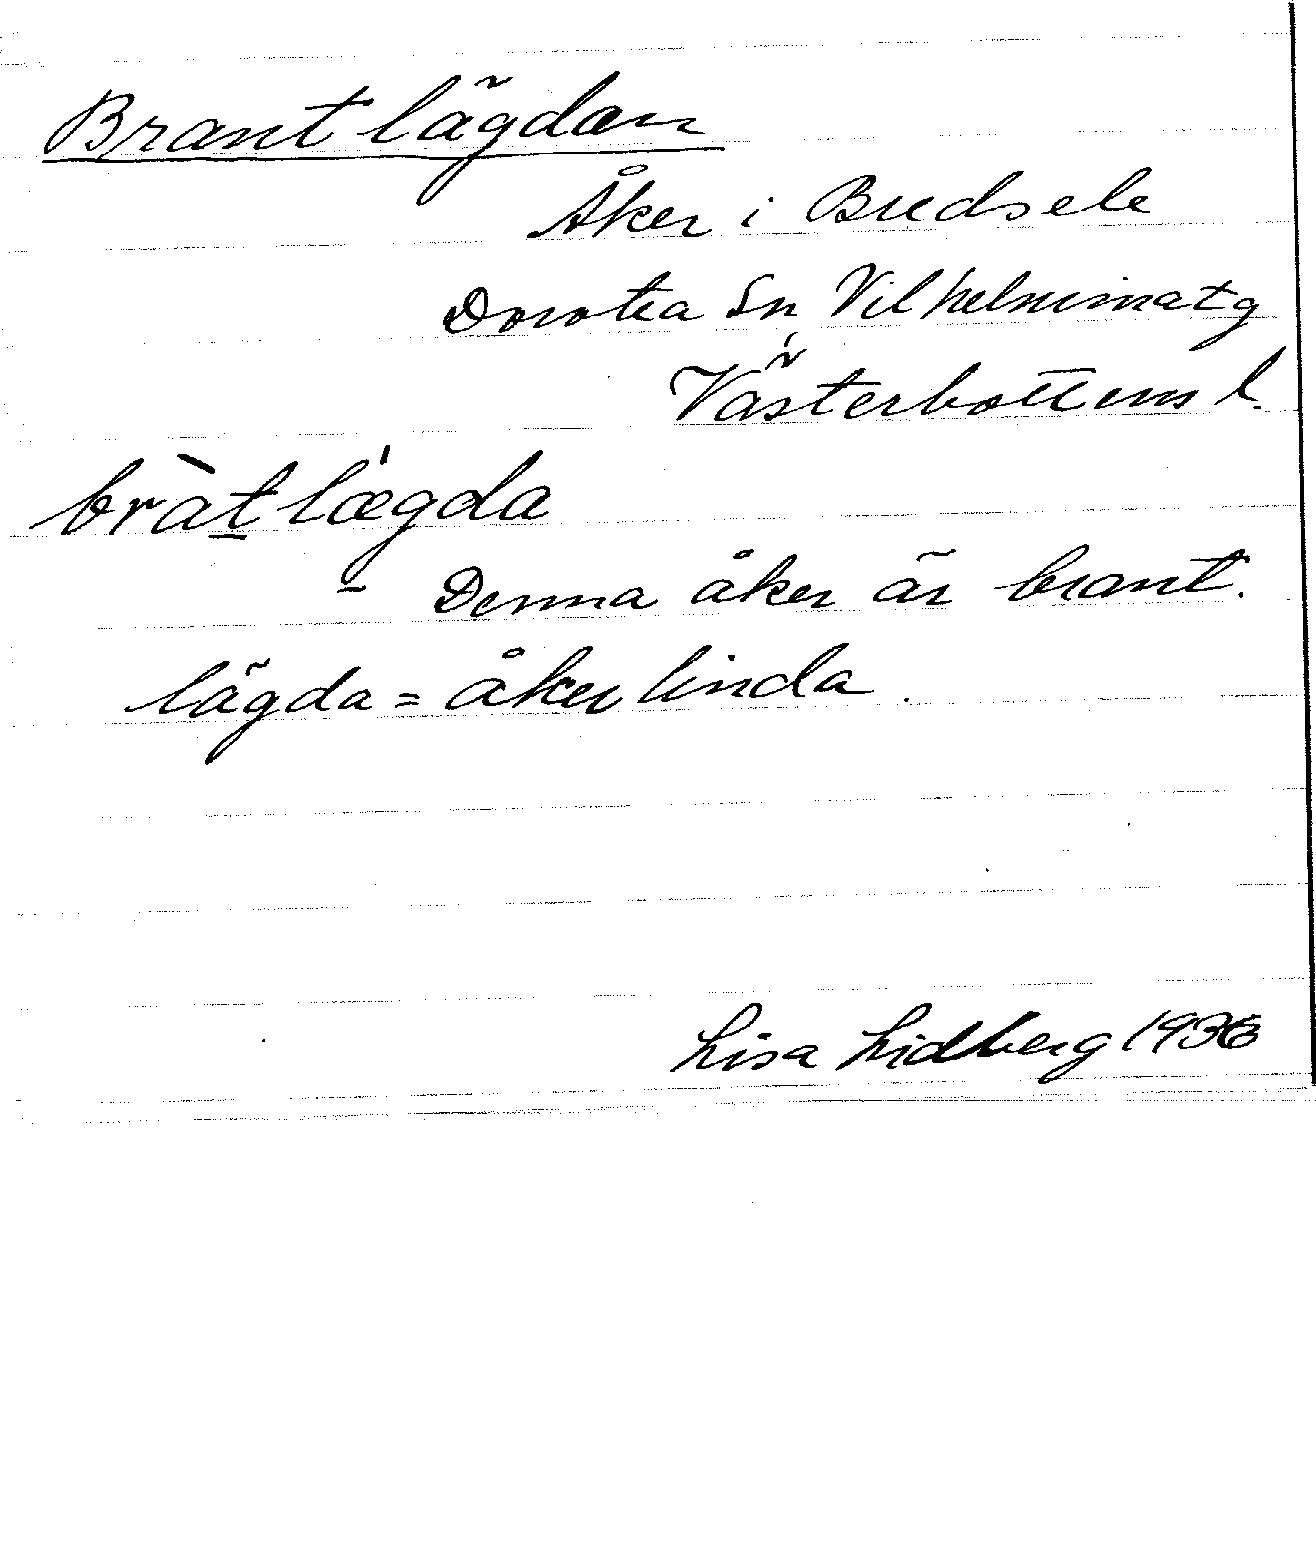 Brantlägdan
Åker i Bredsele
Dorotea Sn, Vilhelmina tg
Västerbottens l.
bràt̲lǽgda
- Denna åker är brant.
lägda = åkerlinda.
Lisa Lidberg 1936